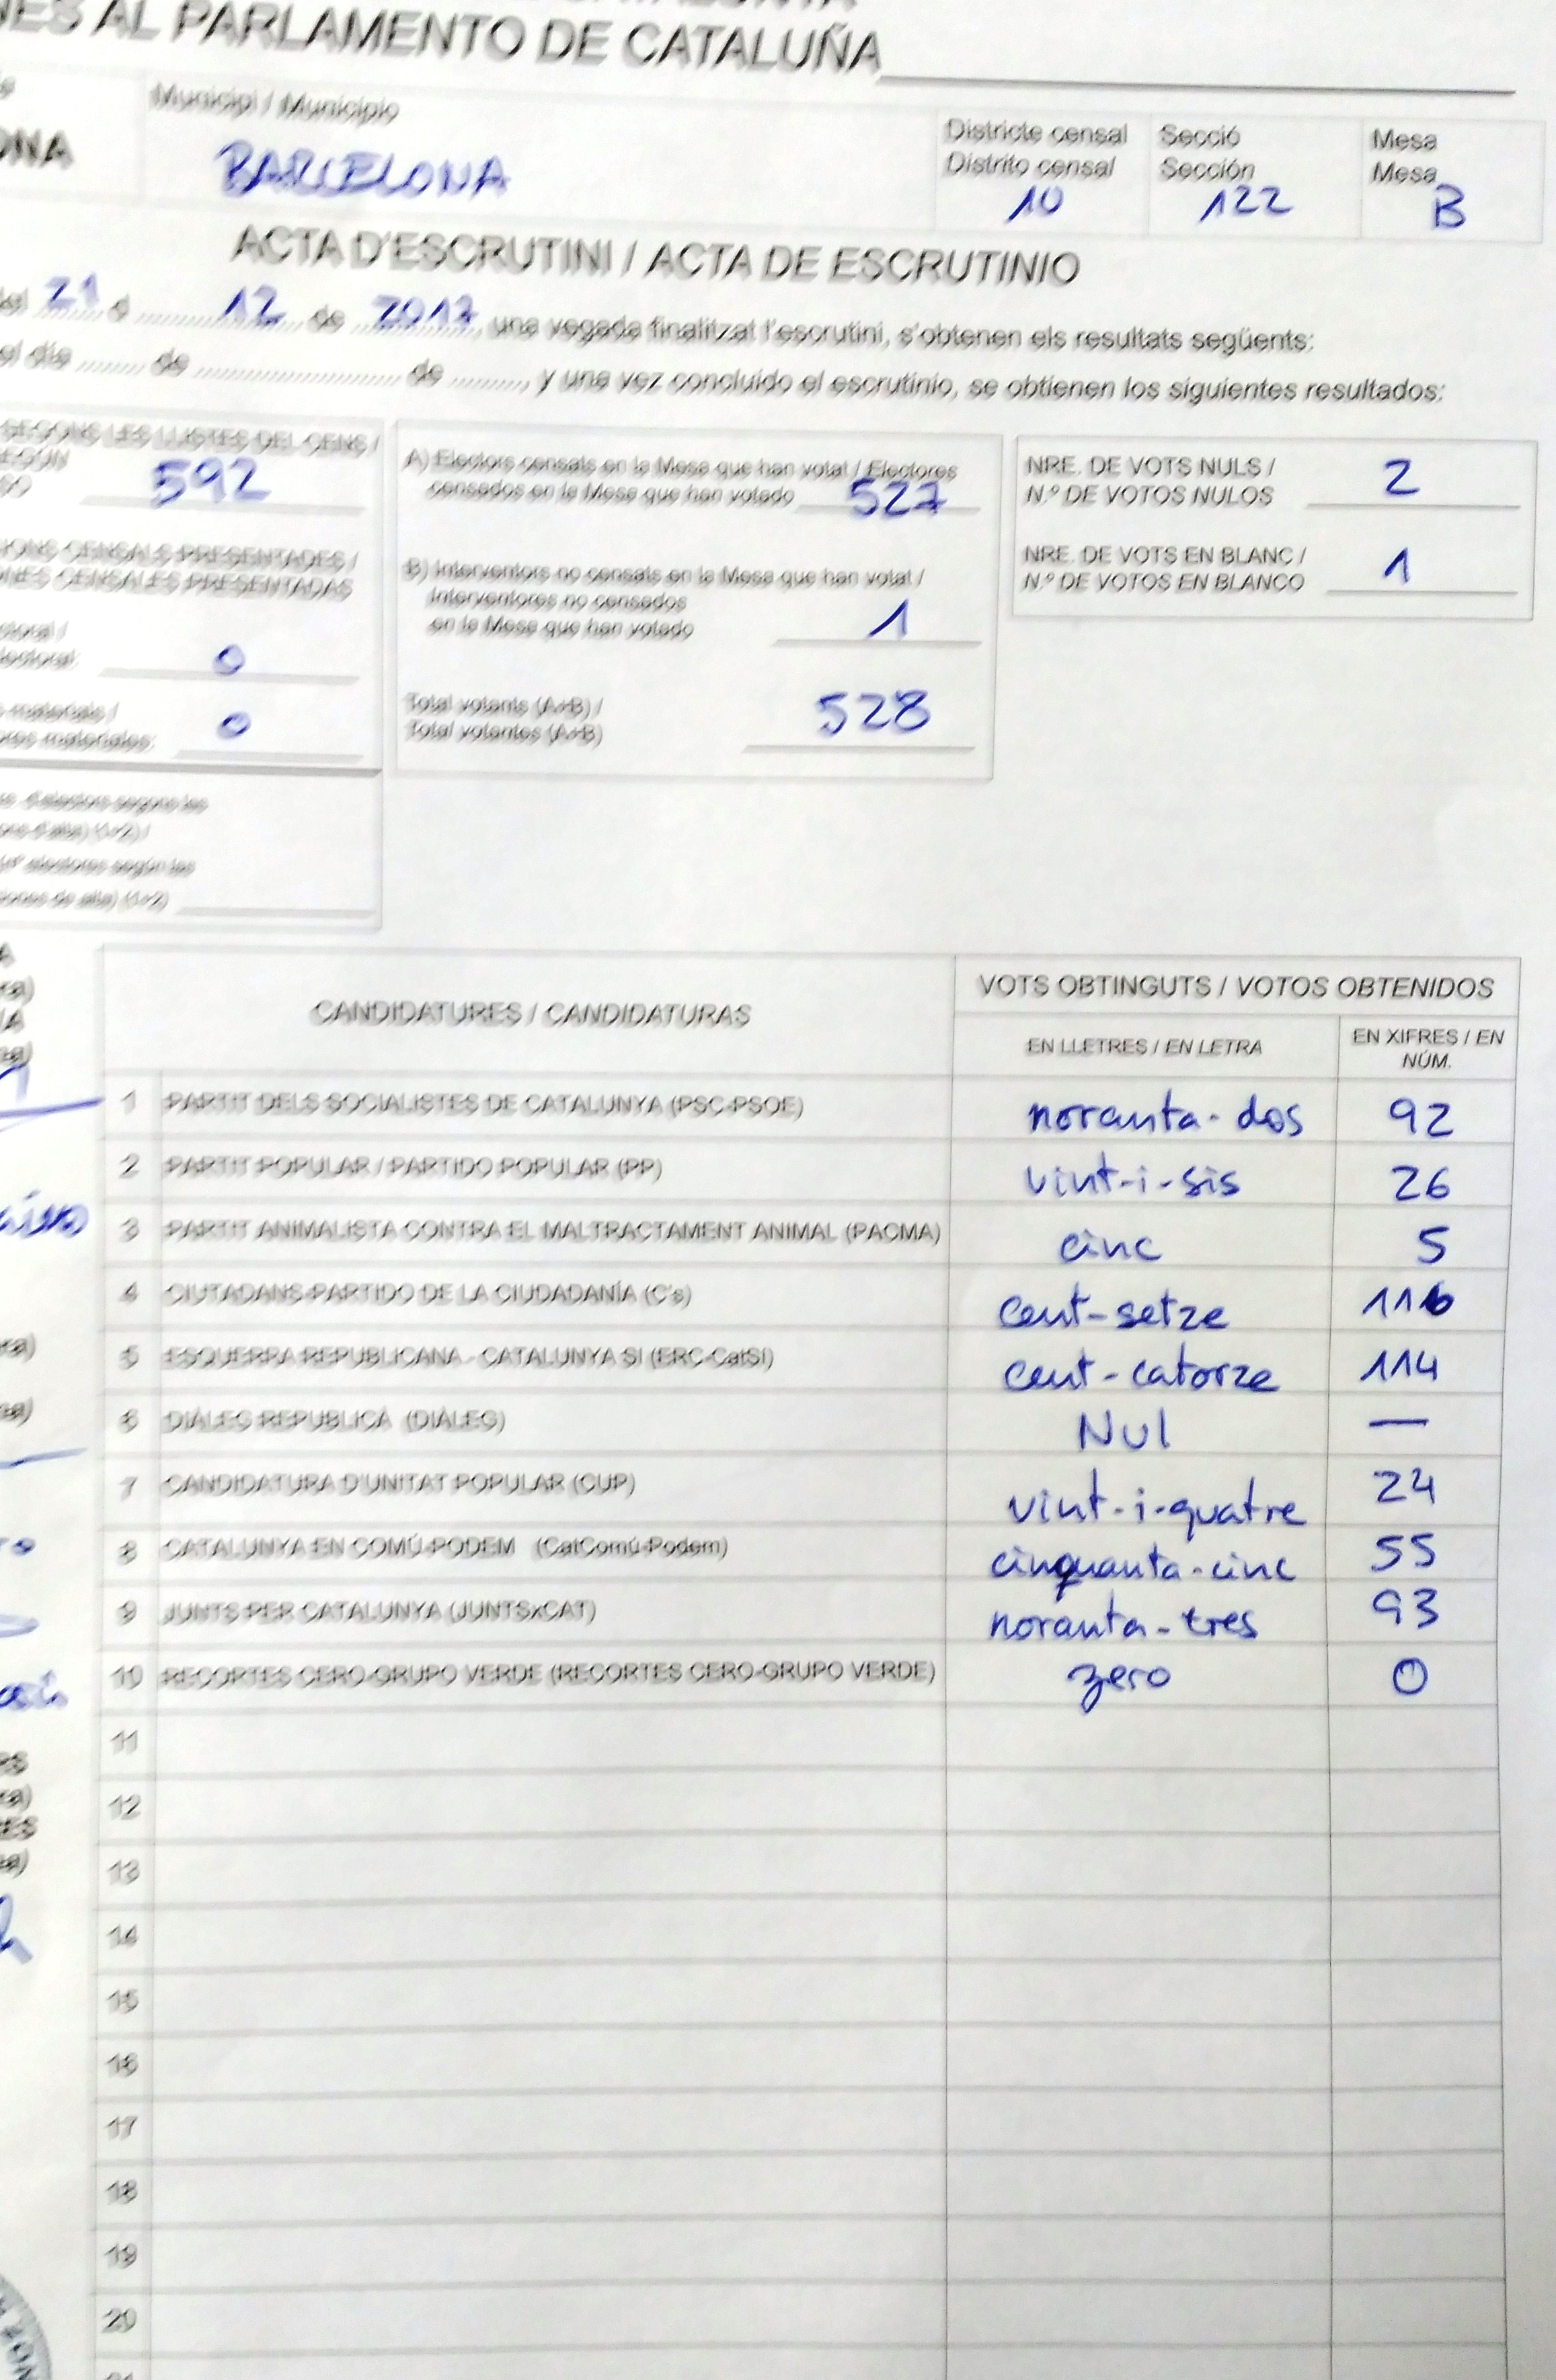 AL PARLAMENTO DE CATALUÑA
Municipi / Municipio
BARCELONA
Districte censal
Distrito censal
10
Secció
Sección
122
Mesa
Mesa
B
ACTA D'ESCRUTINI / ACTA DE ESCRUTINIO
21 d 12 de 2017, una vegada finalitzat l'escrutini, s'obtenen els resultats següents:
el día ....... de .......................... de ........, y una vez concluido el escrutinio, se obtienen los siguientes resultados:
SEGONS LES LLISTES DEL CENS /
592
CENSALS PRESENTADES /
CENSALES PRESENTADAS
0
materials /
materiales:
0
d'electors segons les
(1+2) /
electores según las
de alta) (1+2)
A) Electors censats en la Mesa que han votat / Electores
censados en la Mesa que han votado 527
B) Interventors no censats en la Mesa que han votat /
Interventores no censados
en la Mesa que han votado 1
Total votants (A+B) /
Total votantes (A+B)
528
NRE. DE VOTS NULS /
N.º DE VOTOS NULOS
2
NRE. DE VOTS EN BLANC /
N.º DE VOTOS EN BLANCO
1
CANDIDATURES / CANDIDATURAS
VOTS OBTINGUTS / VOTOS OBTENIDOS
EN LLETRES / EN LETRA
EN XIFRES / EN
NÚM.
1 PARTIT DELS SOCIALISTES DE CATALUNYA (PSC-PSOE) noranta-dos 92
2 PARTIT POPULAR / PARTIDO POPULAR (PP) vint-i-sis 26
3 PARTIT ANIMALISTA CONTRA EL MALTRACTAMENT ANIMAL (PACMA) cinc 5
4 CIUTADANS-PARTIDO DE LA CIUDADANÍA (C's) cent-setze 116
5 ESQUERRA REPUBLICANA - CATALUNYA SI (ERC-CatSI) cent-catorze 114
6 DIÀLEG REPUBLICÀ (DIÀLEG) Nul —
7 CANDIDATURA D'UNITAT POPULAR (CUP) vint-i-quatre 24
8 CATALUNYA EN COMÚ-PODEM (CatComú-Podem) cinquanta-cinc 55
9 JUNTS PER CATALUNYA (JUNTSxCAT) noranta-tres 93
10 RECORTES CERO-GRUPO VERDE (RECORTES CERO-GRUPO VERDE) zero 0
11
12
13
14
15
16
17
18
19
20